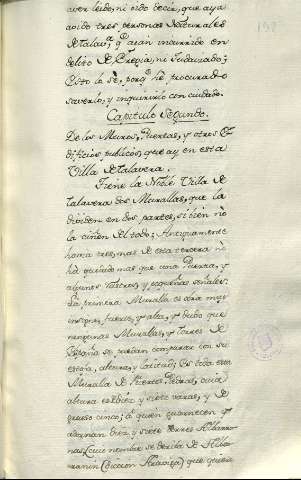 aver leido, ni oido decir, que aya
avido tres personas Naturales
de Talavᵃ qᵉ aian incurrido en
delito de Eregia, ni Judaismo;
esto lo sè, porqᵉ hè procurado
saverlo, y inquirirlo con cuidado.
Capitulo Segundo.
De los Muros, Puertas, y otros E-
dificios publicos, que ay en esta
Villa de Talavera.
Tiene la Noble Villa de
Talavera dos Murallas, que la
dividen en dos partes, si bien no
la ciñen del todo; Antiguamente
havia tres, mas de esta tercera no
há quedado mas que una Puerta, y
algunos y pequeñas señales:
La primera Muralla es obra muy
insigne, fuerte, y alta, y dudo que
ningunas Murallas, y Torres de
España se puedan comparar con su
altura, y latitud; Es toda esta
Muralla de fuertes Piedras, cuia
altura es diez y siete varas, y de
grueso cinco; à quien guarnecen y
adornan diez y siete torres Albarra-
nas (cuio nombre se deriba de Alba-
rranin (diccion ) que quiere
192